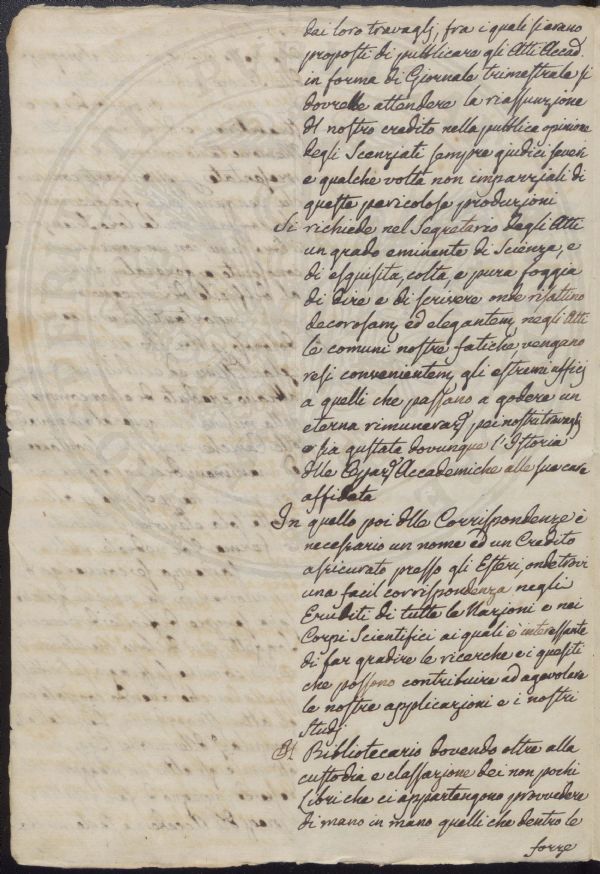 dai loro travaglj, fra i quali si erano
proposti di pubblicare gli Atti Accad.
in forma di Giornale trimestrale si
dovrebbe attendere la riassunzione
del nostro credito nella pubblica opinione
degli Scenziati sempre giudici severi
e qualche volta non imparziali di
queste pericolose produzioni
Si richiede nel Segretario degli Atti
un grado eminente di Scienza, e
di esquisita, colta, e pura foggia
di dire e di scrivere onde risaltino
decorosam, ed elegantem, negli Atti
le comuni nostre fatiche, vengano
resi convenientem, gli estremi ufficj
a quelli che passano a godere un
eterna rimuneraz, pei nostri travaglj
e sia gustata dovunque l'Istoria
delle Accademiche alle sue cure
affidata
In quello poi delle Corrispondenze è
necessario un nome ed un Credito
assicurato presso gli Esteri, onde trovi
una facil corrispondenza negli
Eruditi di tutte le Nazioni e nei
Corpi Scientifici ai quali è interessante
di far gradire le ricerche e i quesiti
che possono contribuire ad agevolare
le nostre applicazioni e i nostri
Studj
Il Bibliotecario dovendo oltre alla
custodia e classazione dei non pochi
Libri che ci appartengono provvedere
di mano in mano quelli che dentro le
forze